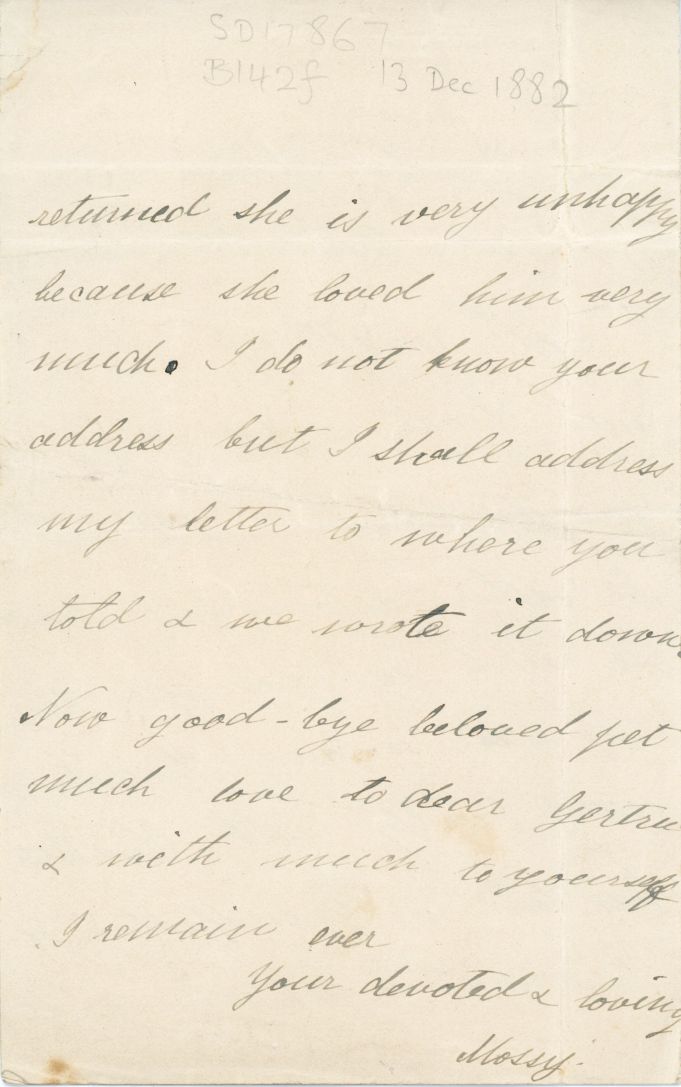 SD17867
B142f 13 Dec 1882
returned she is very unhappy
because she loved him very
much. I do not know your
address but I shall address
my letter to where you
told & we wrote it down
Now good-bye beloved pet
much love to dear Gertru
& with much to yourself
I remain ever
Your devoted & loving
Mossy.